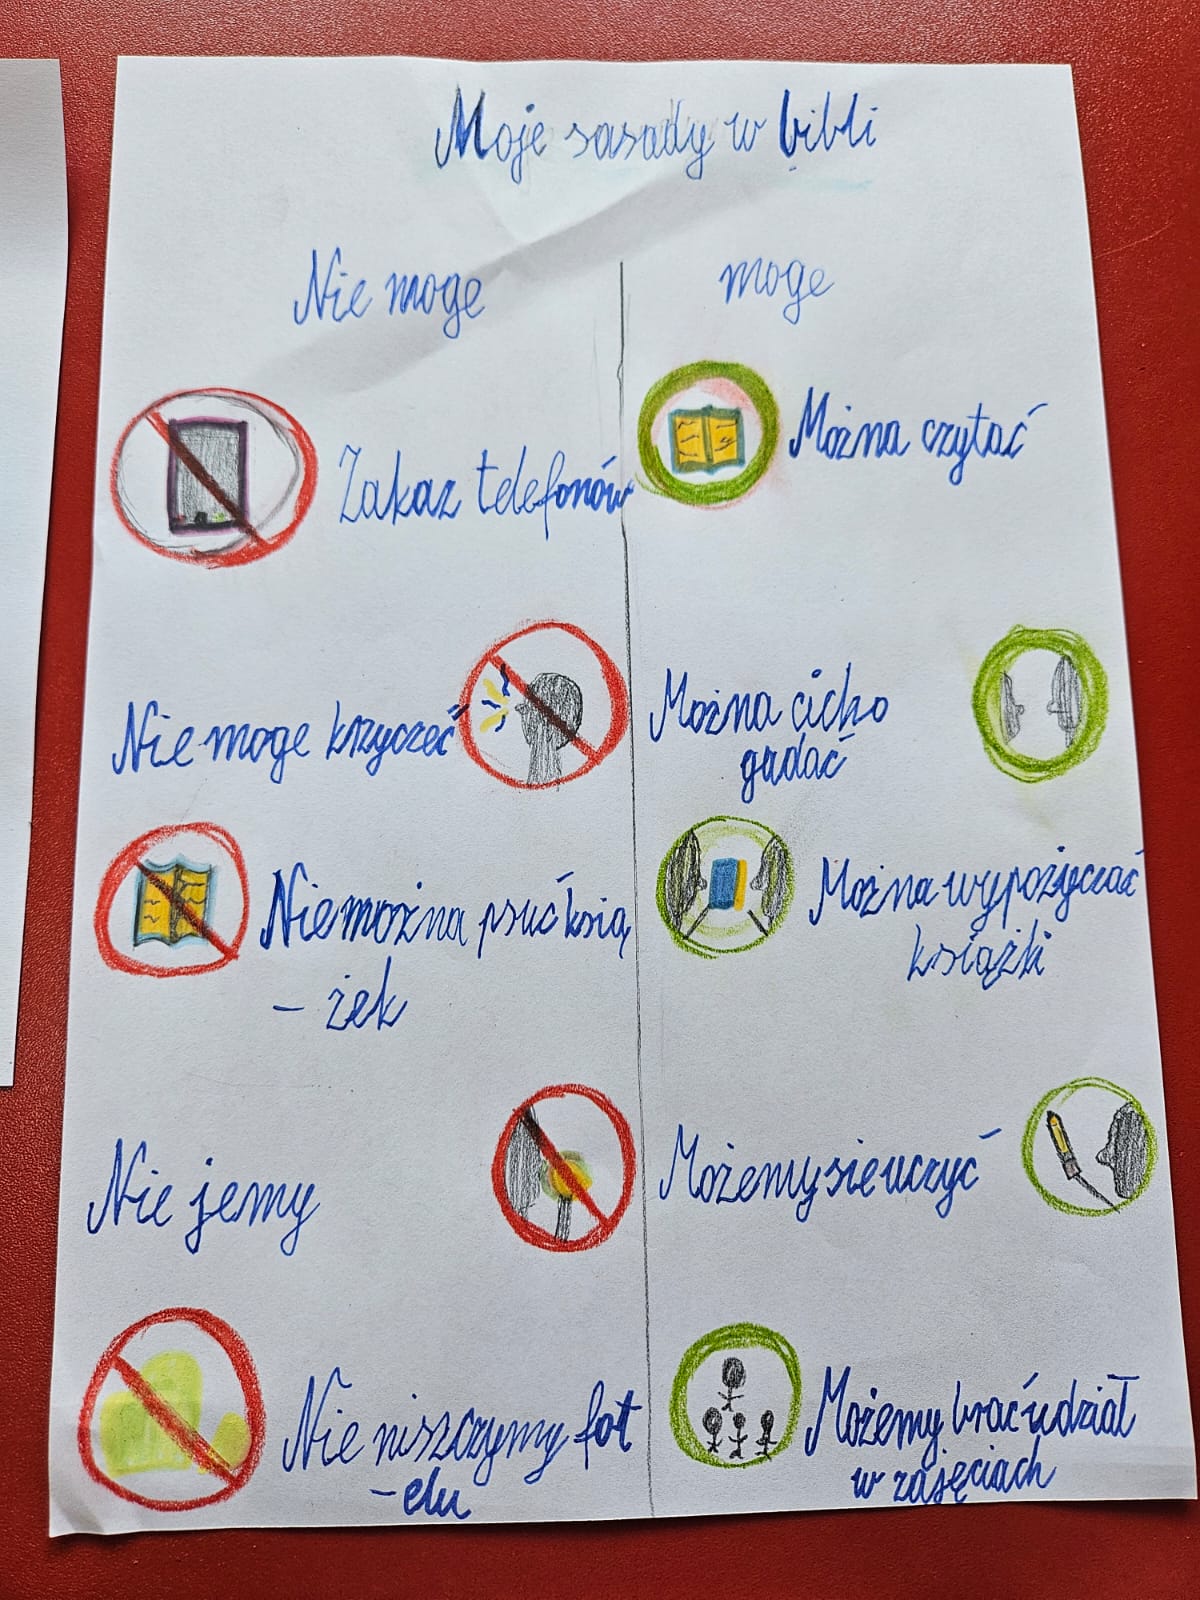 Moje sasady w bibli
Nie moge
Zakaz telefonów
Nie moge krzyczeć
Nie można psuć ksią
- żek
Nie jemy
Nie niszczymy fot
- elu
moge
Można czytać
Można cicho
gadać
Można wypożyczać
książki
Możemy sie uczyć
Możemy brać udział
w zajęciach